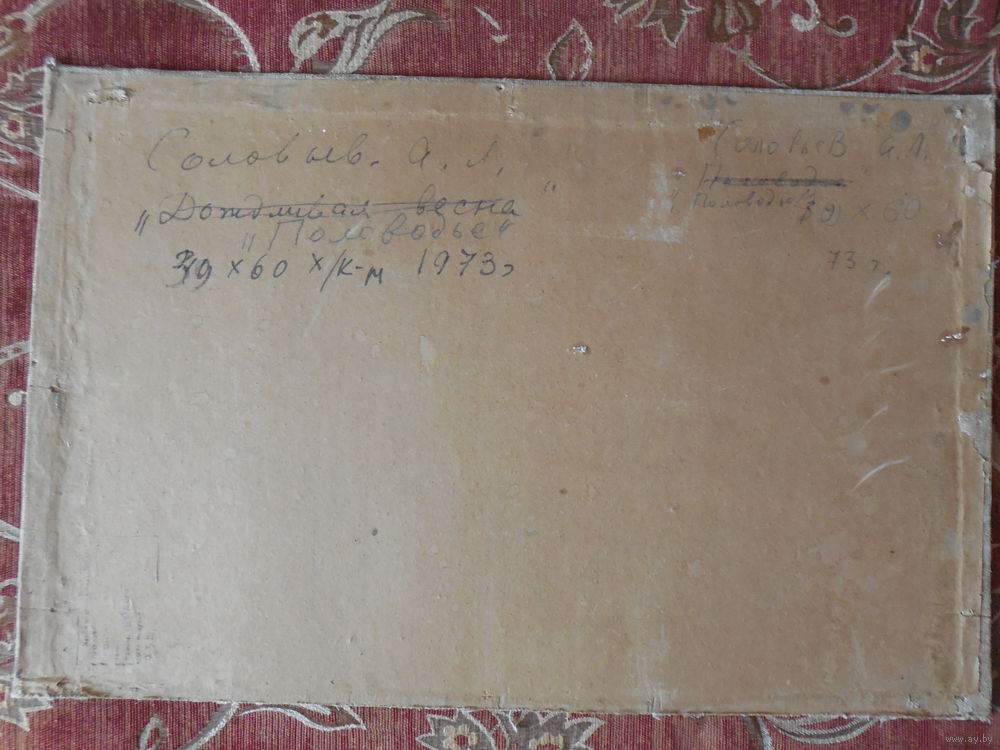 Соловьев. А. Л.
„Дождливая весна"
„Половодье"
39 x 60 х/к-м 1973г
Соловьев А. Л.
Половодье
„Половодье" 39 x 60
73 г.
www.ay.by